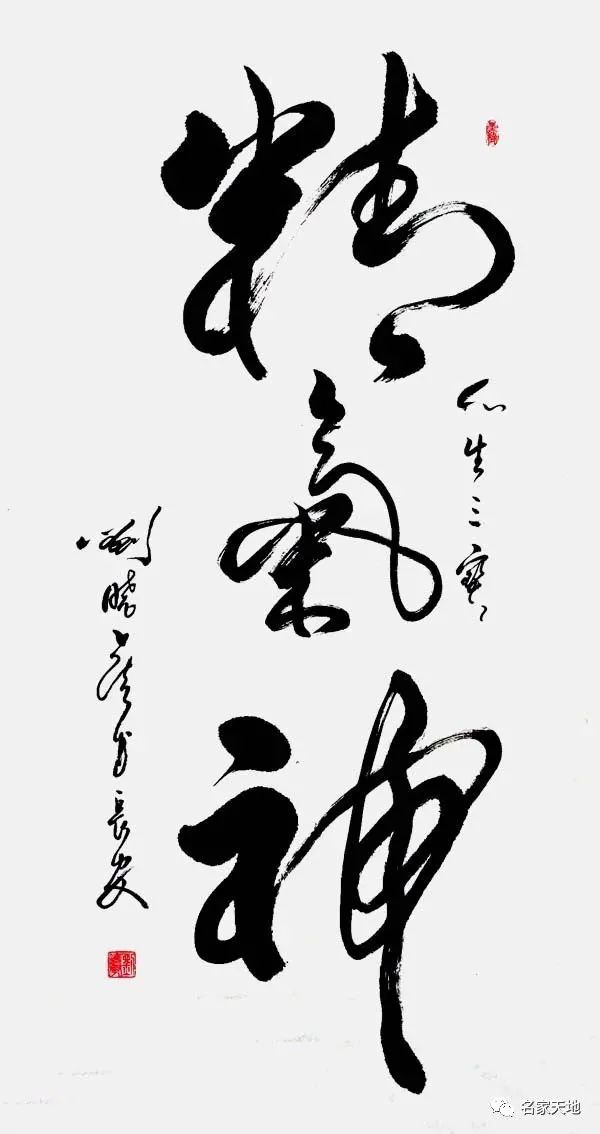 精氣神
生三寶
劉曉 長安
名家天地